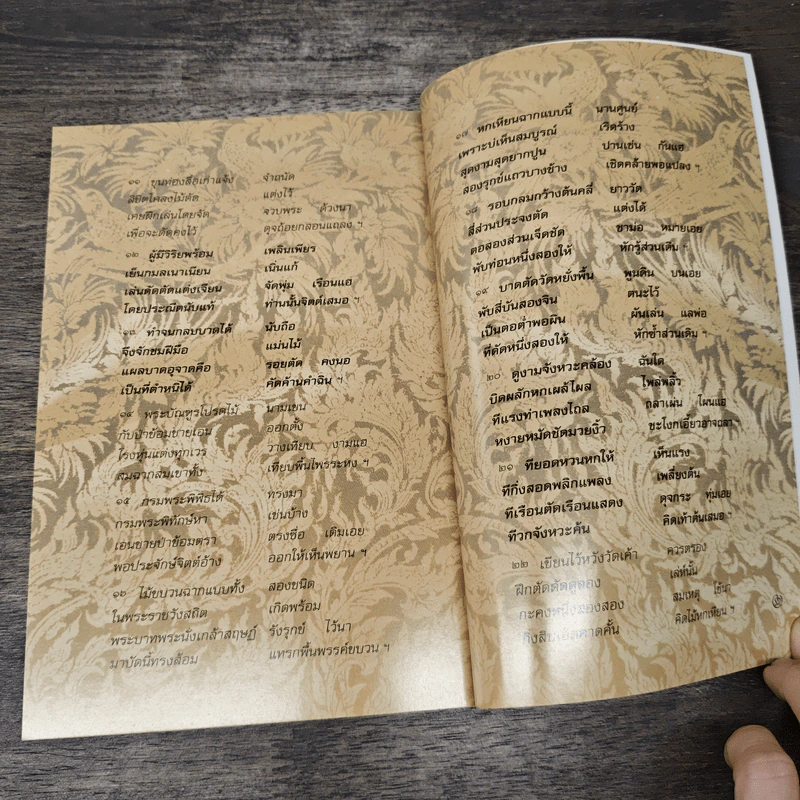 ๑๑ ขุนท่องสื่อเก่าแจ้ง จำถนัด
ลิขิตโคลงไม้ดัด แต่งไว้
เคยฝึกเล่นโดยจัด จวบพระ ด้วงนา
เพื่อจะดัดคงไว้ ดุจถ้อยกลอนแถลง ฯ
๑๒ ผู้มีวิริยพร้อม เพลินเพียร
เย็นกมลเนาเนียน เนิ่นแก้
เล่นดัดตัดแต่งเจียน จัดพุ่ม เรือนแฮ
โดยประณีตนับแท้ ท่านนั้นจิตต์เสมอ ฯ
๑๓ ทำจนกลบบาดได้ นับถือ
จึงจักชมฝีมือ แม่นไม้
แผลบาดอุจาดคือ รอยตัด คงนอ
เป็นที่ตำหนิได้ คัดค้านคำฉิน ฯ
๑๔ พระบัณฑูรโปรดไม้ นามเขน
กับป่าย้อมชายเอน ออกตั้ง
โรงหุ่นแต่งทุกเวร วางเทียบ งามแฮ
สมฉากสมเขาทั้ง เทียบพื้นไพรระหง ฯ
๑๕ กรมพระพิพิธได้ ทรงมา
กรมพระพิทักษ์หา เช่นบ้าง
เอนชายป่าย้อมตรา ตรงชื่อ เดิมเอย
พอประจักษ์จิตต์อ้าง ออกให้เห็นพยาน ฯ
๑๖ ไม้ขบวนฉากแบบทั้ง สองชนิด
ในพระรายวังสถิต เกิดพร้อม
พระบาทพระนั่งเกล้าสฤษฎ์ รังรุกข์ ไว้นา
มาบัดนี้ทรงส้อม แทรกพื้นพรรค์ขบวน ฯ
๑๗ หกเหียนฉากแบบนี้ นานศูนย์
เพราะบ่เห็นสมบูรณ์ เริดร้าง
สุดงามสุดยากปูน ปานเช่น กันแฮ
ลองรุกข์แถวบางช้าง เชิดคล้ายพอแปลง ฯ
๑๘ รอบกลมกว้างต้นคลี่ ยาววัด
สี่ส่วนประจงตัด แต่งได้
ตอสองส่วนเจ็ดชัด ชาน่อ หมายเอย
พับท่อนหนึ่งสองให้ หักรู้ส่วนเดิน ฯ
๑๙ บาดตัดวัดหยั่งพื้น พูนดิน บนเอย
พับสี่บั่นสองจิน ตนะไว้
เป็นตอต่ำพอผิน ผันเล่น แลพ่อ
ที่ตัดหนึ่งสองให้ หักซ้ำส่วนเดิม ฯ
๒๐ ดูงามจังหวะคล้อง ฉันใด
บิดผลักหกเผล้ไผล ไพล่พลิ้ว
ทีแรงทำเพลงไถล ถลาเผ่น โผนแฮ
หงายหมัดชัดมวยงิ้ว ชะโงกเอี้ยวอาจถลา
๒๑ ทียอดหวนหกให้ เห็นแรง
ทีกิ่งสอดพลิกแพลง เพลี่ยงต้น
ทีเรือนดัดเรือนแสดง ดุจกระ ทุ่มเอย
ทีวกจังหวะค้น คิดเท้าต้นเสมอ ฯ
๒๒ เขียนไว้หวังวัดเค้า ควรตรอง
ฝึกดัดตัดดูลอง เล่ห์นั้น
กะคงหนึ่งของสอง สมเหตุ ใช้นา
คิดไม้หกเหียน ฯ